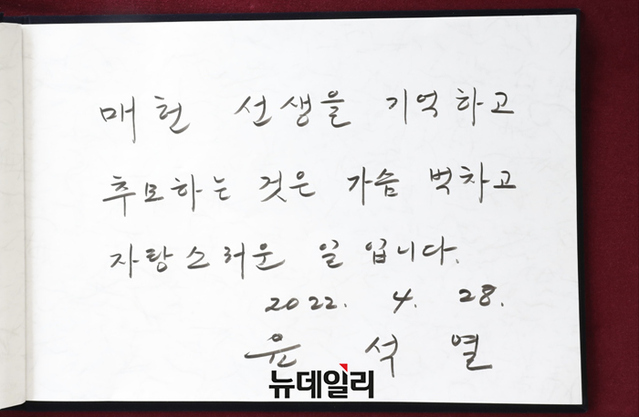 매헌 선생을 기억하고
추모하는 것은 가슴 벅차고
자랑스러운 일 입니다.
2022. 4. 28.
윤 석 열
뉴데일리